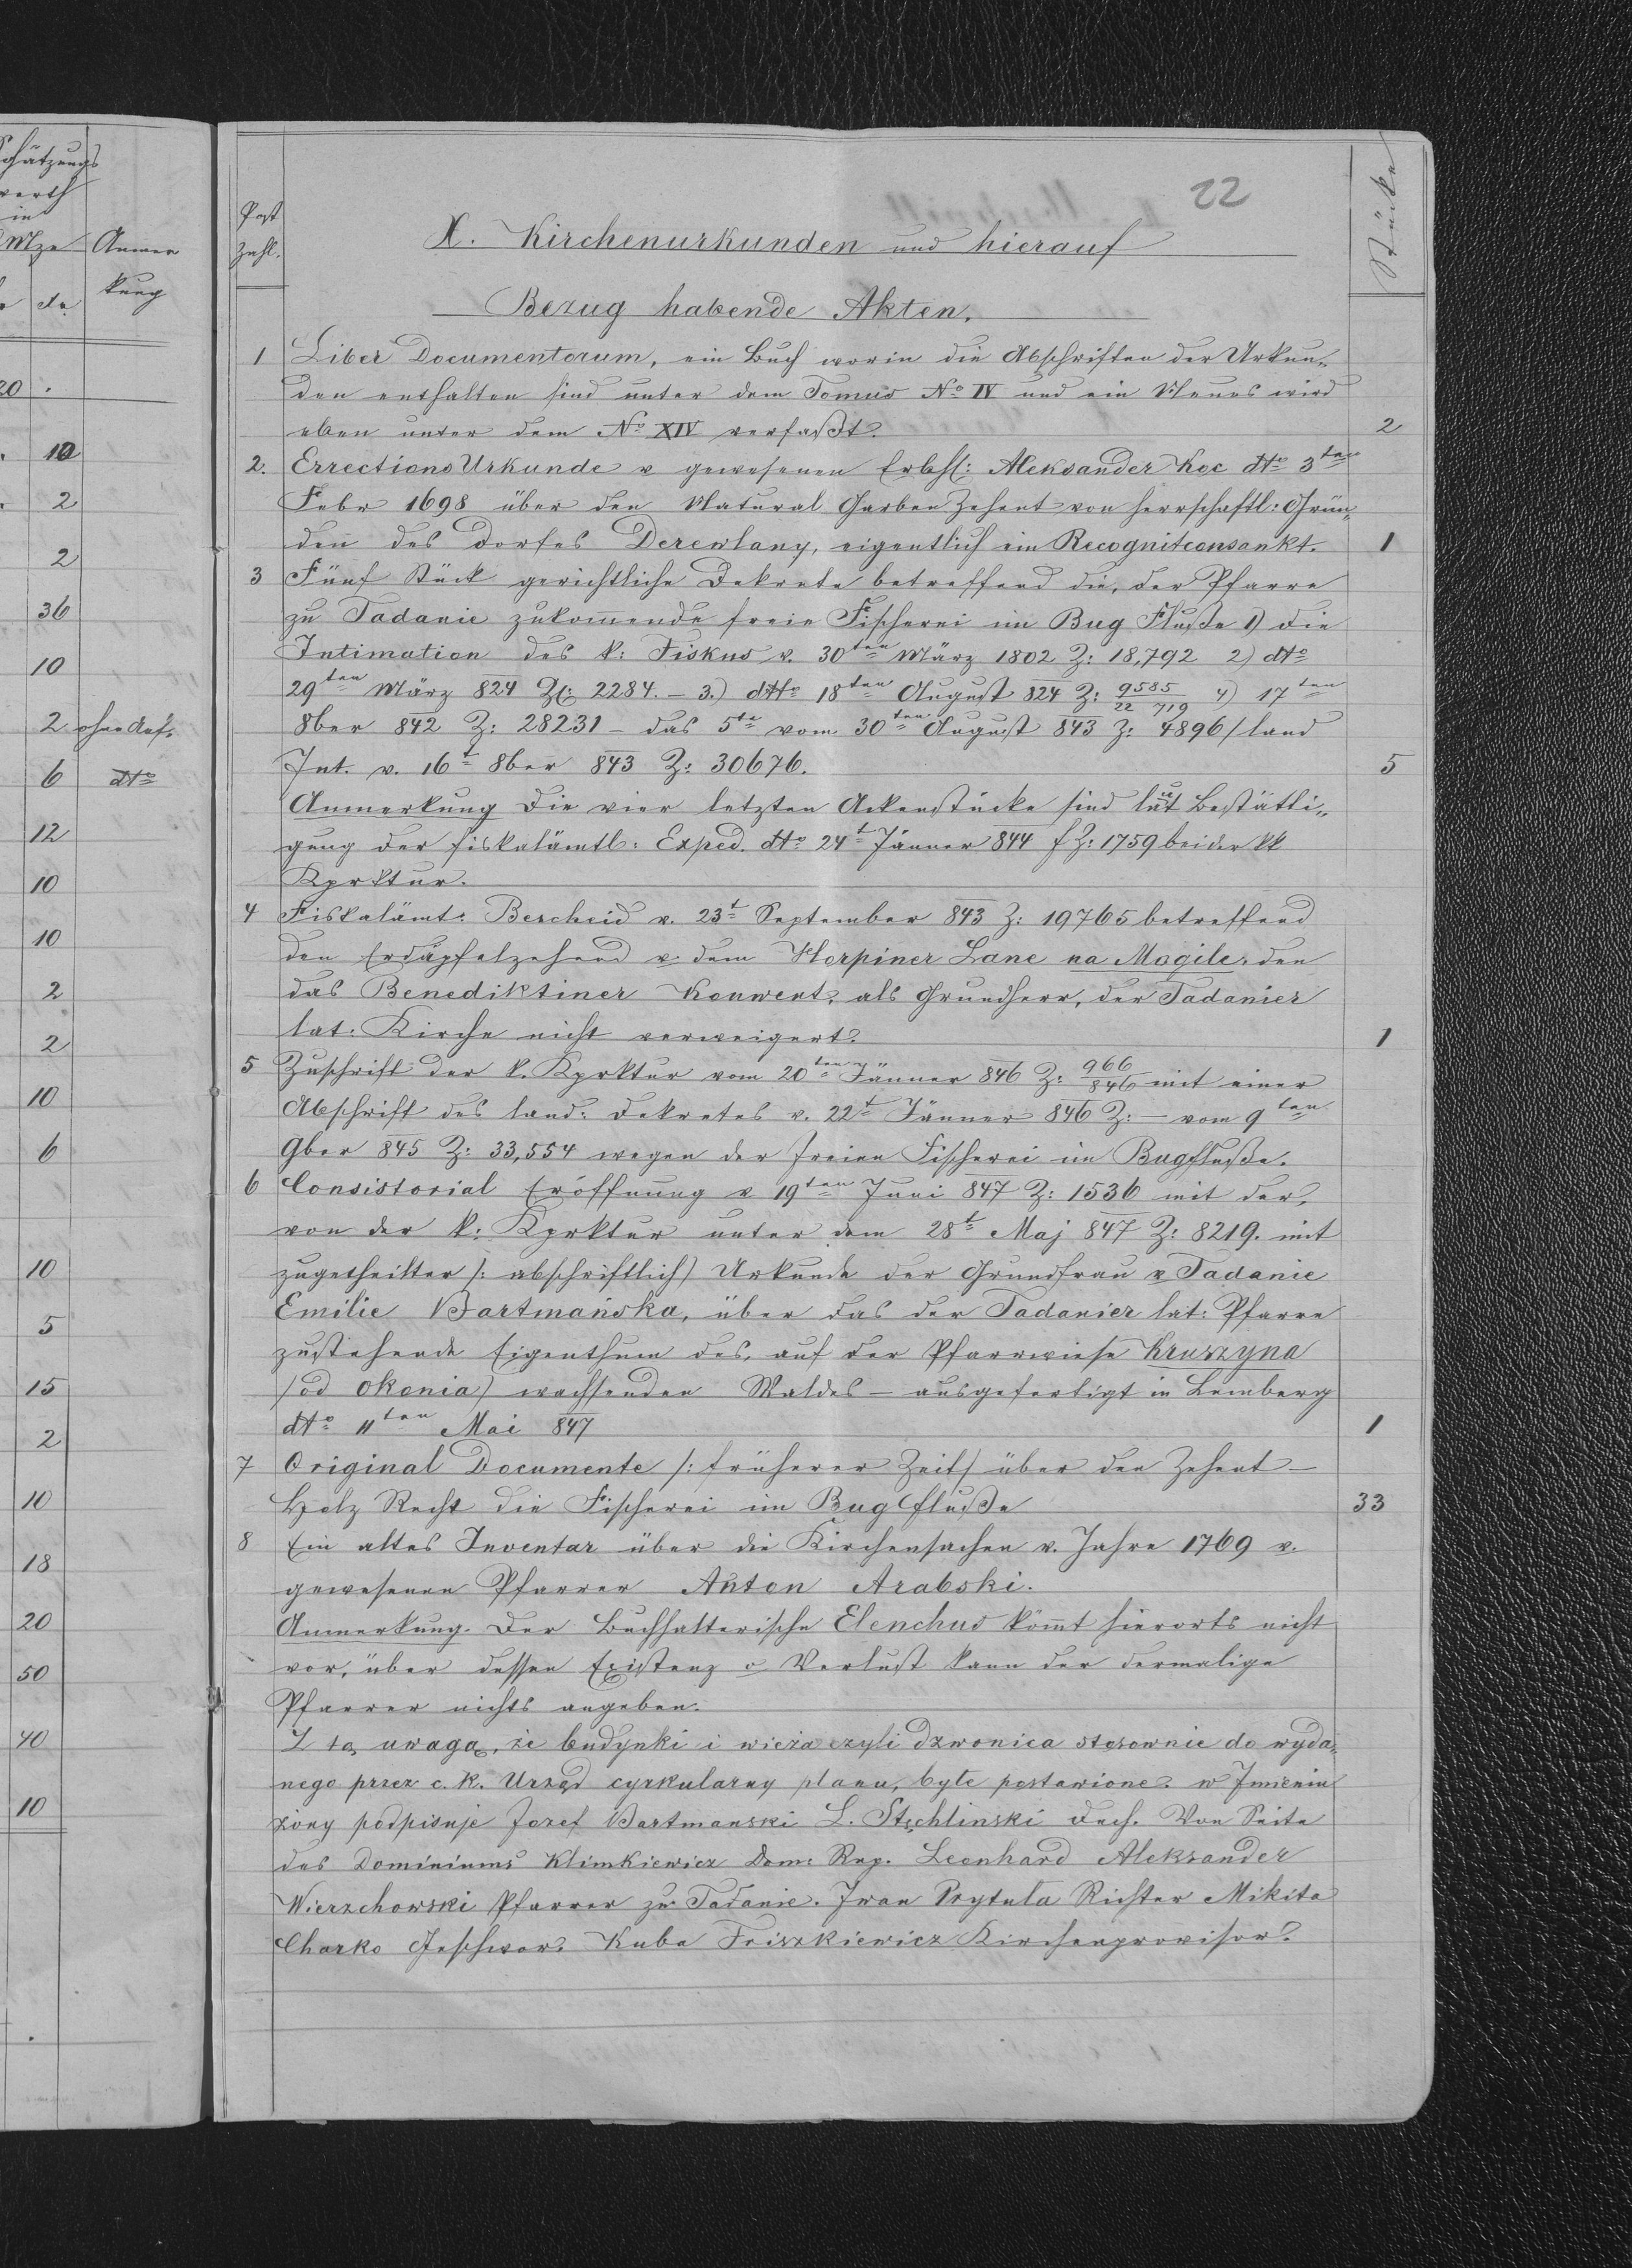 Schätzungs
werth
in
Mze
Anmer
kung
dr
20 .
10
2
2
36
10
2 ohne Auf.
6 dto
12
10
10
2
2
10
6
10
5
15
2
10
18
20
50
40
10
22
Post
Zahl.
Stücke
X. Kirchenurkunden und hierauf
Bezug habende Akten.
1 Liber Documentorum, ein Buch worin die Abschriften der Urkun„
den enthalten sind unter dem Tomus No IV und ein Neues wird
eben unter dem No XIV verfaßt. 2
2. Errections Urkunde v gewesenen Erbhl: Aleksander Koc dto 3ten
Febr 1698 über den Natural Garben Zehent von herrschaftl: Grün„
den des Dorfes Derewlany, eigentlich ein Recognitconsankt. 1
3 Fünf Stück gerichtliche Dekrete betreffend die, der Pfarre
zu Tadanie zukom̅ende freie Fischerei im Bug Fluße 1) die
Intimation des k: Fiskus v. 30ten März 1802 Z: 18,792 2) dto
29ten März 824 Zl: 2284. – 3.) dtto 18ten August 824 Z: 9585/22 719 4) 17ten
8ber 842 Z: 28231 – das 5te vom 30ten August 843 Z: 4896 / land
Int. v. 16t 8ber 843 Z: 30676. 5
Anmerkung Die vier letzten Ackenstücke sind laut Bestätti„
gung der fiskalämtl: Exped. dto 24t Jänner 844 f Z: 1759 bei der kk
Kprktur.
4 Fiskalämt: Bescheid v. 23t September 843 Z: 19765 betreffend
den Erdäpfelzehend v. dem Horpiner Lane na Mogile, den
das Benediktiner Konwent, als Grundherr, der Tadanier
lat: Kirche nicht verweigert. 1
5 Zuschrift der k. Kprktur vom 20ten Jänner 846 Z: 966/846 mit einer
Abschrift des land: Dekretes v. 22t Jänner 846 Z: – vom 9ten
9ber 845 Z: 33,554 wegen der freien Fischerei im Bugfluße.
6 Consistorial Eröffnung v 19ten Juni 847 Z: 1536 mit der,
von der k: Kprktur unter dem 28t Maj 847 Z: 8219. mit
zugetheilter /: abschriftlich) Urkunde der Grundfrau v Tadanie
Emilie Bartmańska, über das der Tadanier lat: Pfarre
zustehende Eigenthum des, auf der Pfarrwiese Kruszyna
/od okonia) wachsenden Waldes – ausgefertigt in Lemberg
dto 11ten Mai 847 1
7 Original Documente /: früherer Zeit/ über den Zehent –
Holz Recht die Fischerei im Bug Fluße 33
8 Ein altes Inventar über die Kirchensachen v. Jahre 1769 v.
gewesenen Pfarrer Anton Arabski.
Anmerkung. Der Buchhalterische Elenchus köm̅t hierorts nicht
vor, über dessen Existenz o Verlust kann der dermalige
Pfarrer nichts angeben.
Z tą uwagą, że budynki i wieża czyli dzwonica stosownie do wyda„
nego przez c. k. Urząd cyrkularny planu, byłe postawione. w Jmieniu
żony podpisuje Jozef Bartmanski L. Stęchlinski Dech. Von Seite
des Dominiums Klimkiewicz Dom: Rep. Leonhard Aleksander
Wierzchowski Pfarrer zu Tadanie. Jwan Prytuła Richter Mikita
Charko Geschwor. Kuba Friszkiewicz Kirchenprovisor.